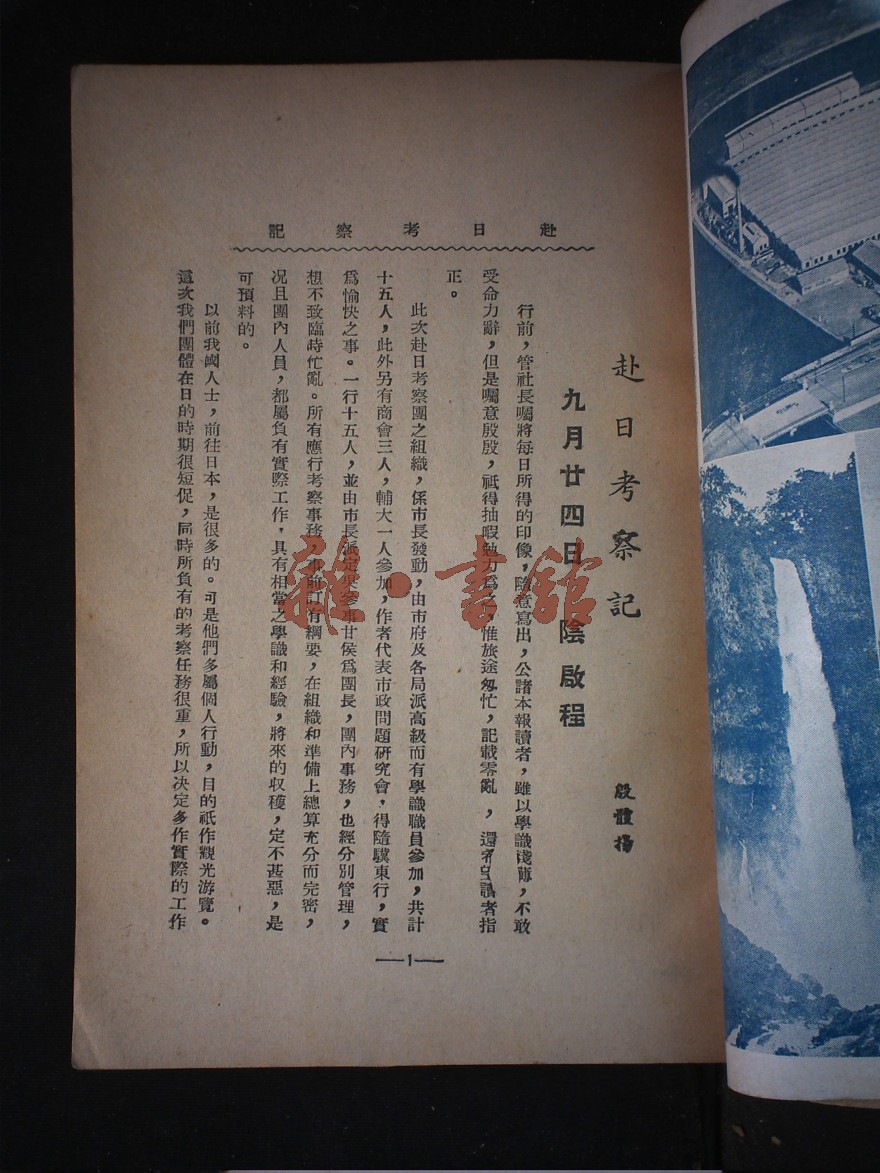 赴日考察記
赴日考察記
九月廿四日 陰 啟程
殷體揚
行前，管社長囑將每日所得的印像，隨意寫出，公諸本報讀者，雖以學識淺薄，不敢
受命力辭，但是囑意殷殷，祇得抽暇勉力爲之，惟旅途匆忙，記載零亂，還希讀者指
正。
此次赴日考察團之組織，係市長發動，由市府及各局派高級而有學識職員參加，共計
十五人，此外另有商會三人，輔大一人參加，作者代表市政問題研究會，得隨驥東行，實
爲愉快之事。一行十五人，並由市長派定果參事甘侯爲團長，團內事務，也經分別管理，
想不致臨時忙亂。所有應行考察事務，事前訂有綱要，在組織和準備上總算充分而完密，
况且團內人員，都屬負有實際工作，具有相當之學識和經驗，將來的收穫，定不甚惡，是
可預料的。
以前我國人士，前往日本，是很多的。可是他們多屬個人行動，目的祇作觀光游覽。
這次我們團體在日的時期很短促，同時所負有的考察任務很重，所以决定多作實際的工作
—1—
雜·書館